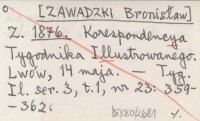 [ZAWADZKI Bronisław]
Z. 1876. Korespondencya
Tygodnika Illustrowanego.
Lwów, 14 maja. — Tyg.
Il. ser. 3, t. 1, nr 23: 359-
-362.